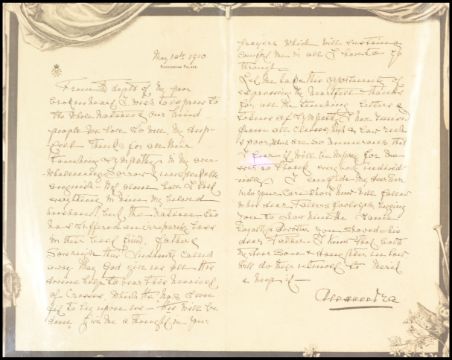 May 10th 1910
BUCKINGHAM PALACE.
From the depth of my poor
broken heart I wish to express to
the whole Nation & our kind
people we love so well my deep
felt thanks for all their
touching sympathy in my over-
whelming sorrow & unspeakable
anguish. Not alone have I lost
everything in Him my beloved
husband but the Nation too
has suffered an irreparable loss
in their best friend, Father
& Sovereign thus suddenly called
away. May God give us all His
divine help to bear this
of Crosses which He has
fit to lay upon us. His will be
done. Give me a thought in your
prayers which will sustain &
comfort me in all I have to go
through.
Let me take this opportunity of
expressing my heartfelt thanks
for all the touching letters &
tokens of sympathy I have
from all classes high & low rich
& poor which are so numerous that
I fear it will be impossible for me
ever to thank everybody individ
ually. I confide my dear Son
into your care who I know will follow
in his dear Father's footsteps begging
you to show him the same
loyalty & devotion you showed his
dear Father. I know that both
my dear Son & daughter in law
will do their utmost to merit
& keep it.
Alexandra